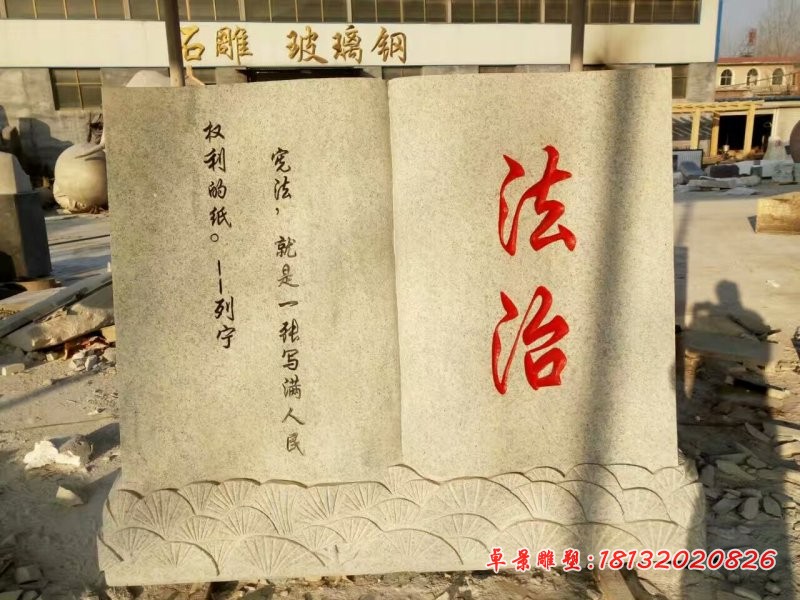 石雕 玻璃钢
法治
宪法，就是一张写满人民
权利的纸。——列宁
卓景雕塑:18132020826